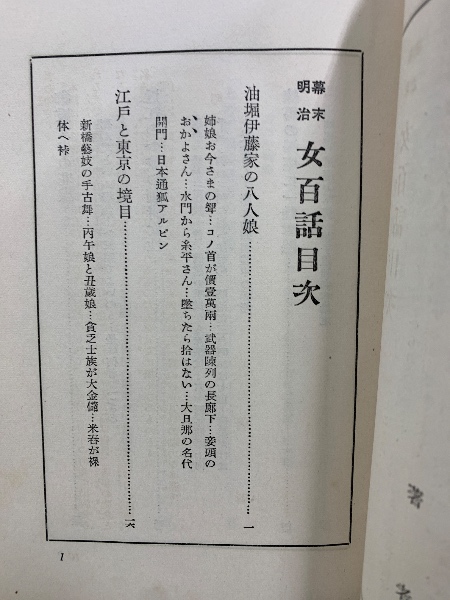 幕末
明治
女百話目次
油堀伊藤家の八人娘……一
姉娘お今さまの聟…コノ首が價壹萬兩…武器陳列の長廊下…妾頭の
おかよさん…水門から糸平さん…墜ちたら拾はない…大旦那の名代
開門…日本通狐アルビン
江戸と東京の境目……一六
新橋藝妓の手古舞…丙午娘と丑歳娘…貧乏士族が大金儲…米舂が裸
体へ裃
1